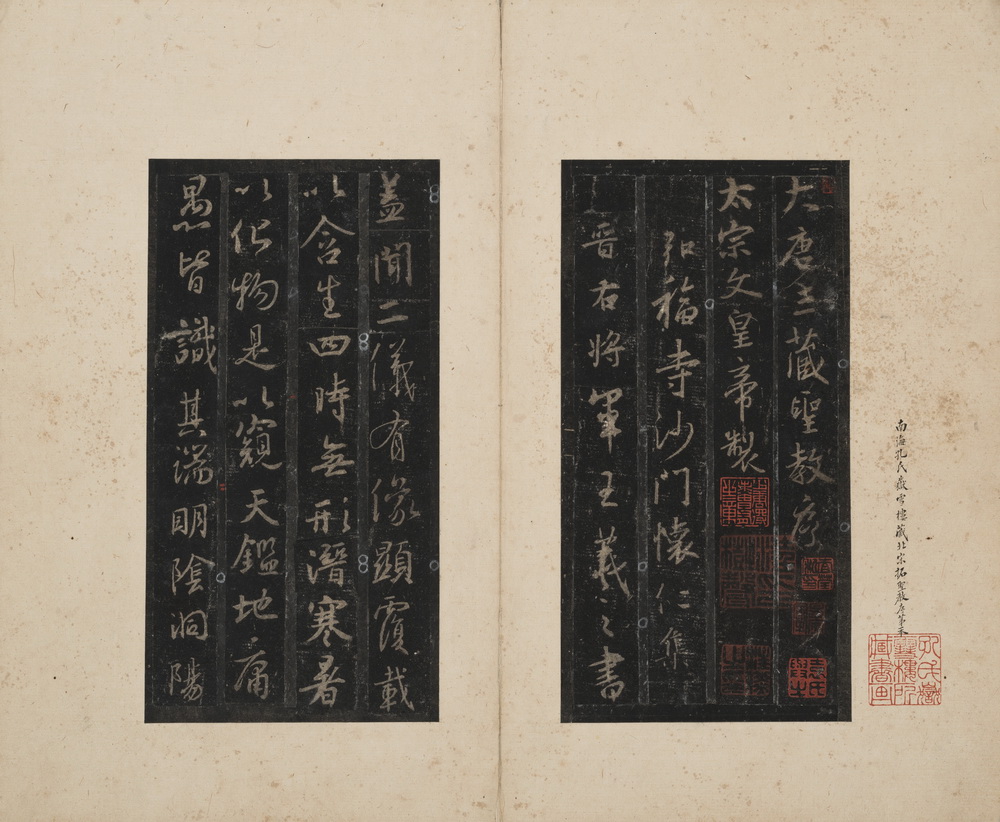 大唐三藏聖教序
太宗文皇帝製
弘福寺沙門懷仁集
晉右將軍王羲之書
蓋聞二儀有像顯覆載
以含生四時無形潛寒暑
以化物是以窺天鑑地庸
愚皆識其端明陰洞陽
南海孔氏嶽雪樓藏北宋拓聖教序第
孔氏嶽雪樓所藏書画